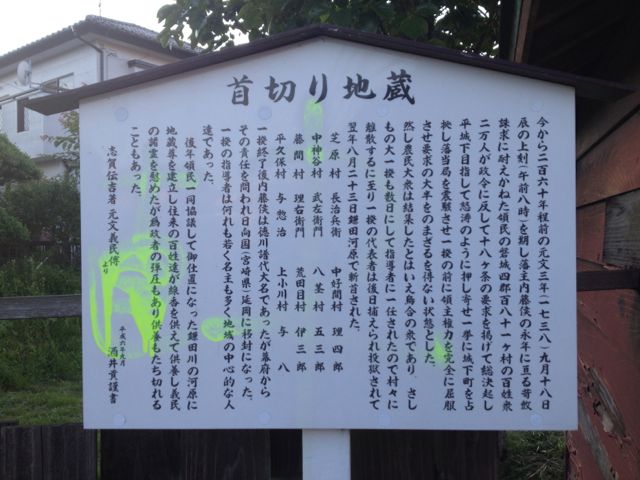 首切り地蔵
今から二百六十年程前の元文三年(一七三八)九月十八
辰の上刻(午前八時)を期し藩主内藤侯の永年に亘る苛斂
誅求に耐えかねた領民の磐城四郡百八十一ヶ村の百姓衆
二万人が政令に反して十八ヶ条の要求を掲げて総決起し
平城下目指して怒涛のように押し寄せ一挙に城下町を占
拠し落当局を震駭させ一揆の前に領主権力を完全に屈服
させ要求の大半をのまざるを得ない状態とした。
然し農民大衆は結集したとはいえ烏合の衆であり、さし
もの大一揆も数日にして指導者に一任されたので村々に
離散するに至り一揆の代表者は後日捕えられ投獄されて
翌年八月二十三日鎌田河原で斬首された。
芝原村 長治兵衛 中好間村 理四郎
中神谷村 武左衛門 八茎村 五三郎
藤間村 理右衛門 荒田目村 伊三郎
平久保村 与惣治 上小川村 与八
一揆終了後内藤侯は徳川譜代大名であったが幕府から
その責任を問われ日向国(宮崎県)延岡に移封になった。
一揆の指導者は何れも若く名主も多く地域の中心的な人
達であった。
後年領民一同協議して御仕置になった鎌田川の河原に
地蔵尊を建立し往来の百姓達が線香を供えて供養し義民
の諸霊を慰めたが為政者の弾圧もあり供養もたち切れる
こともあった。
志賀伝吉著 元文義民傳 より
平成六年九月
酒井貢謹書